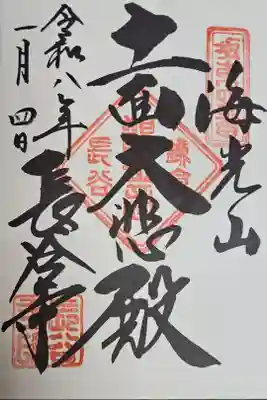 海光山
十一面大悲殿
長谷寺
令和八年
一月四日
長谷
鎌倉